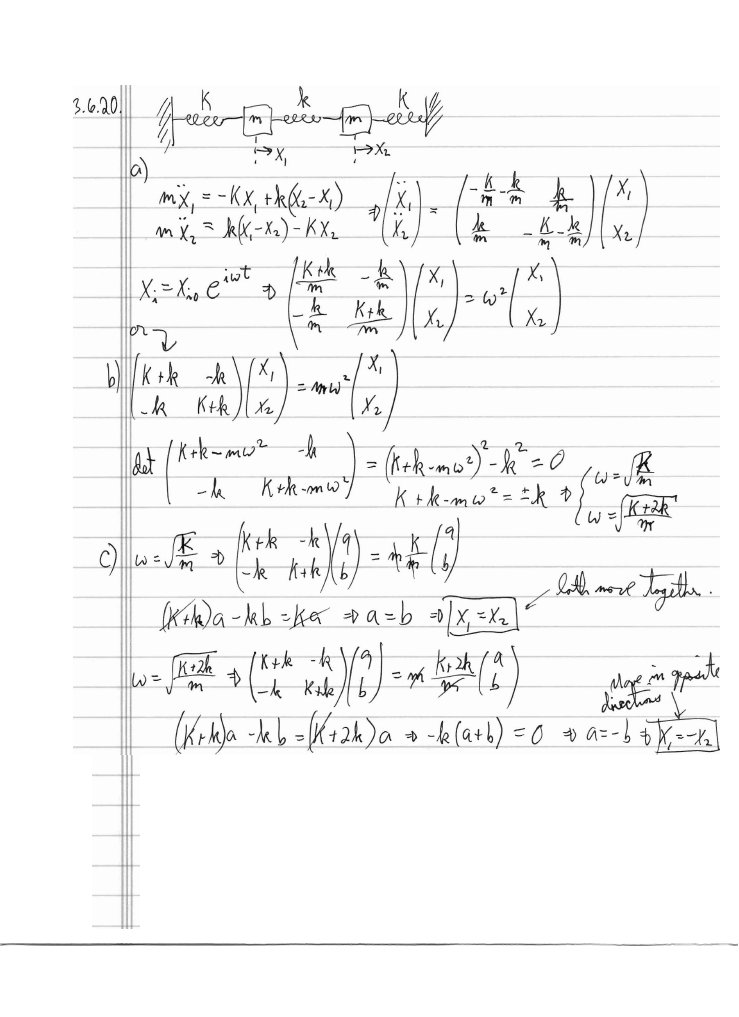 3.6.20.
K k K
m m
→ x₁ → x₂
a)
mẍ₁ = -Kx₁ + k(x₂-x₁) ⇒ (ẍ₁ ẍ₂) = (-K/m - k/m k/m
mẍ₂ = k(x₁-x₂) - Kx₂ k/m -K/m - k/m) (x₁ x₂)
xᵢ = xᵢ₀ e^{iωt} ⇒ ((K+k)/m -k/m
-k/m (K+k)/m) (x₁ x₂) = ω² (x₁ x₂)
or
b) (K+k -k
-k K+k) (x₁ x₂) = mω² (x₁ x₂)
det (K+k-mω² -k
-k K+k-mω²) = (K+k-mω²)² - k² = 0
K+k-mω² = ±k ⇒ { ω = √(K/m)
ω = √((K+2k)/m)
c) ω = √(K/m) ⇒ (K+k -k
-k K+k) (a b) = m K/m (a b)
both move together.
(K+k)a - kb = Ka ⇒ a = b ⇒ x₁ = x₂
ω = √((K+2k)/m) ⇒ (K+k -k
-k K+k) (a b) = m (K+2k)/m (a b)
Move in opposite
directions
(K+k)a - kb = (K+2k)a ⇒ -k(a+b) = 0 ⇒ a = -b ⇒ x₁ = -x₂